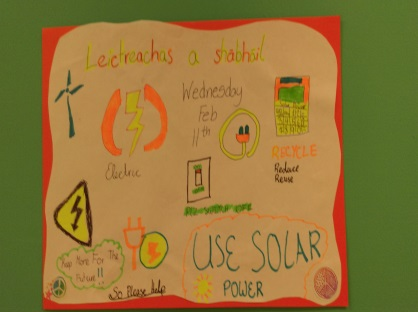 Leictreachas a shábháil
Wednesday
Feb
11th
Electric
RECYCLE
Reduce
Reuse
Keep More For The
Future!!
So Please help
USE SOLAR
POWER